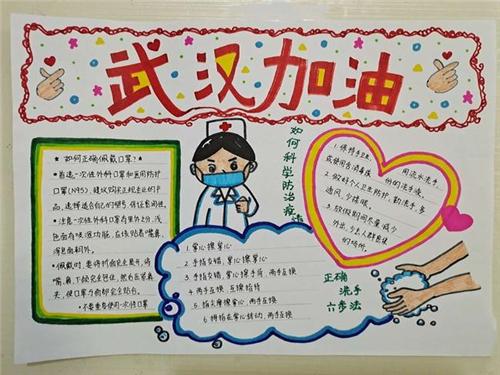 武汉加油
★如何正确佩戴口罩?★
●首选一次性外科口罩和医用防护
口罩(N95),建议购买正规企业的产
品,选择适合自己的型号,保证密闭性。
●注意一次性外科口罩有里外2分,浅
色面有吸湿功能,应该贴着嘴鼻,
深色面朝外。
●佩戴时,要将折面完全展开,将
嘴、鼻、下颌完全包住,然后压紧鼻
夹,使口罩与面部完全贴合。
●不要重复使用一次性口罩
如何科学防治疫
1.保持手卫生,用流水洗手,
或使用含消毒液的洗手液。
2.做好个人卫生防护,勤洗手,多
通风,少揉眼。
3.放假期间尽量减少
外出,少去人群密集
的场所。
1.掌心擦掌心
2.手指交错,掌心擦掌心
3.手指交错,掌心擦手背,两手互换
4.两手互握,互擦指背
5.指尖摩擦掌心,两手互换
6.拇指在掌心转动,两手互换
正确
洗手
六步法